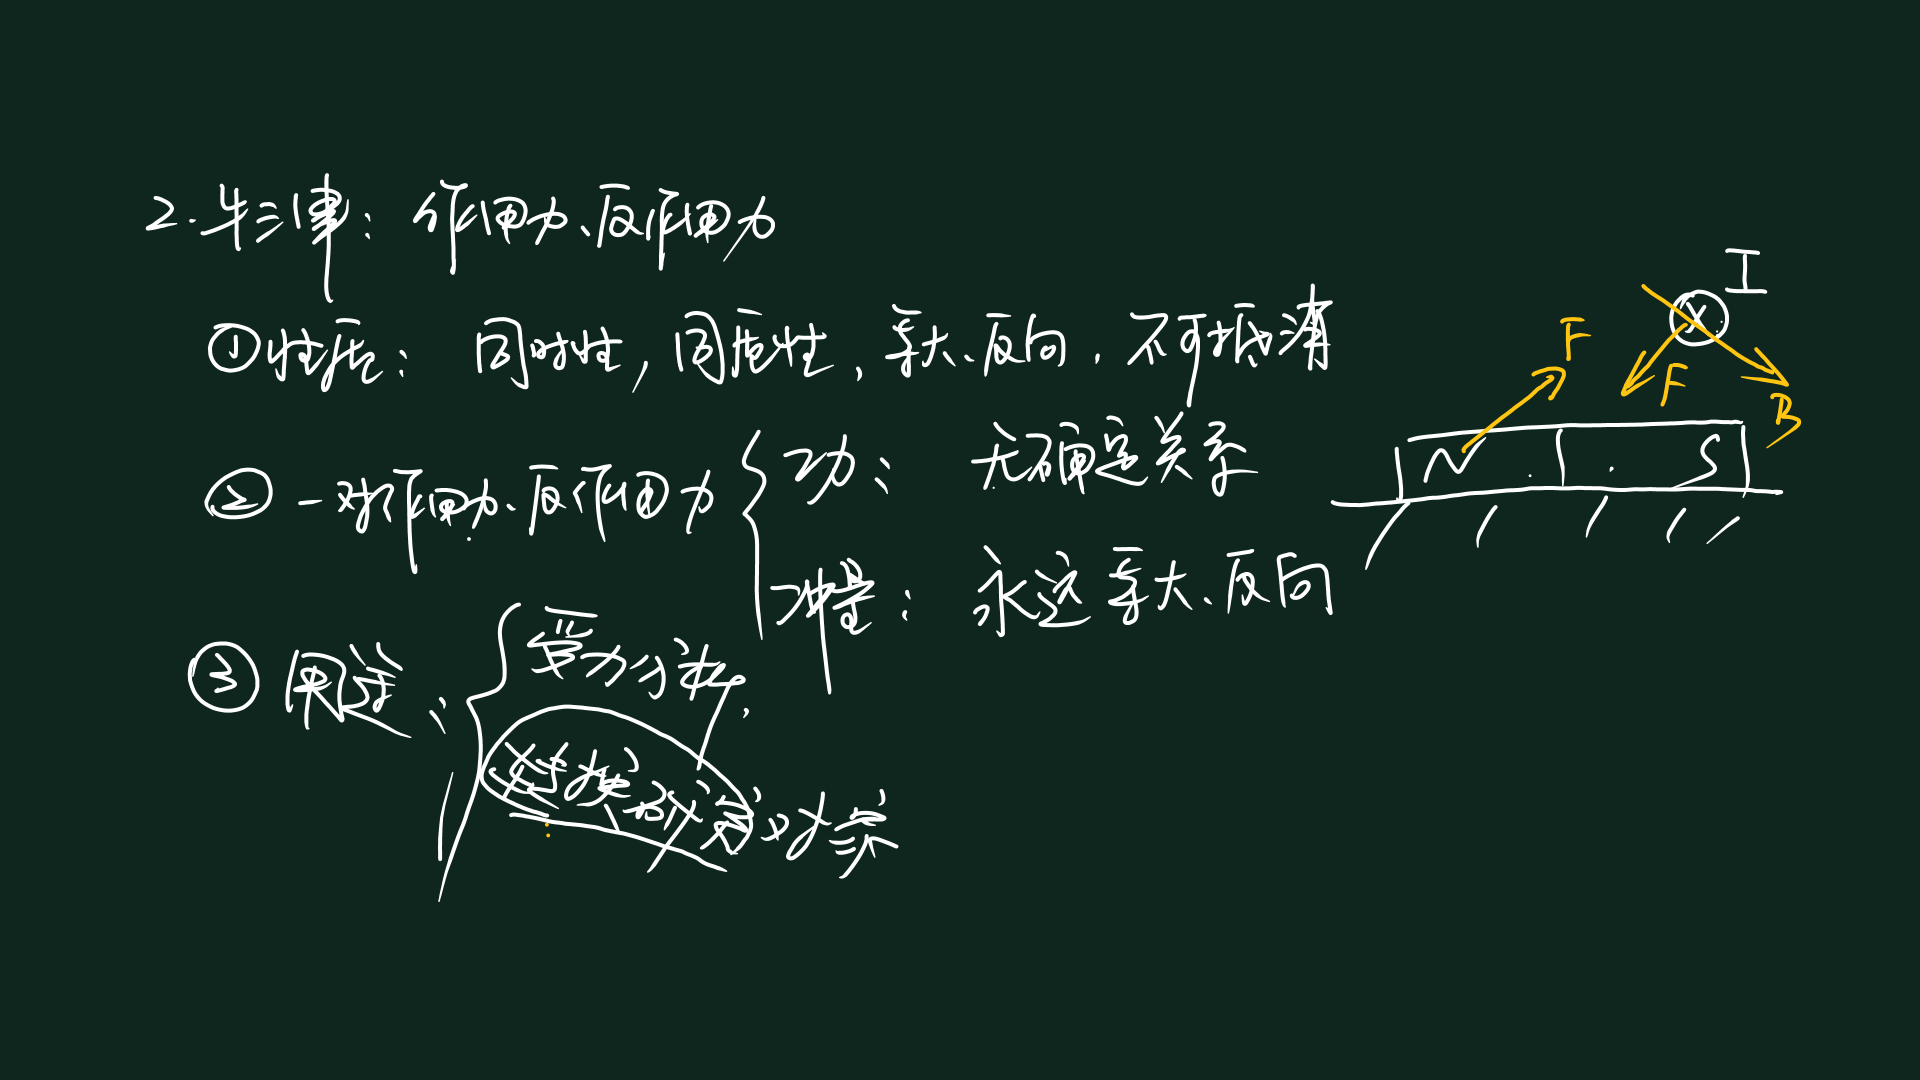 2. 牛三律：作用力、反作用力
①性质：同时性，同质性，等大、反向，不可抵消
②一对作用力、反作用力
功：无确定关系
冲量：永远等大、反向
③用途：
受力分析，
转换研究对象
I
F
F
B
N
S